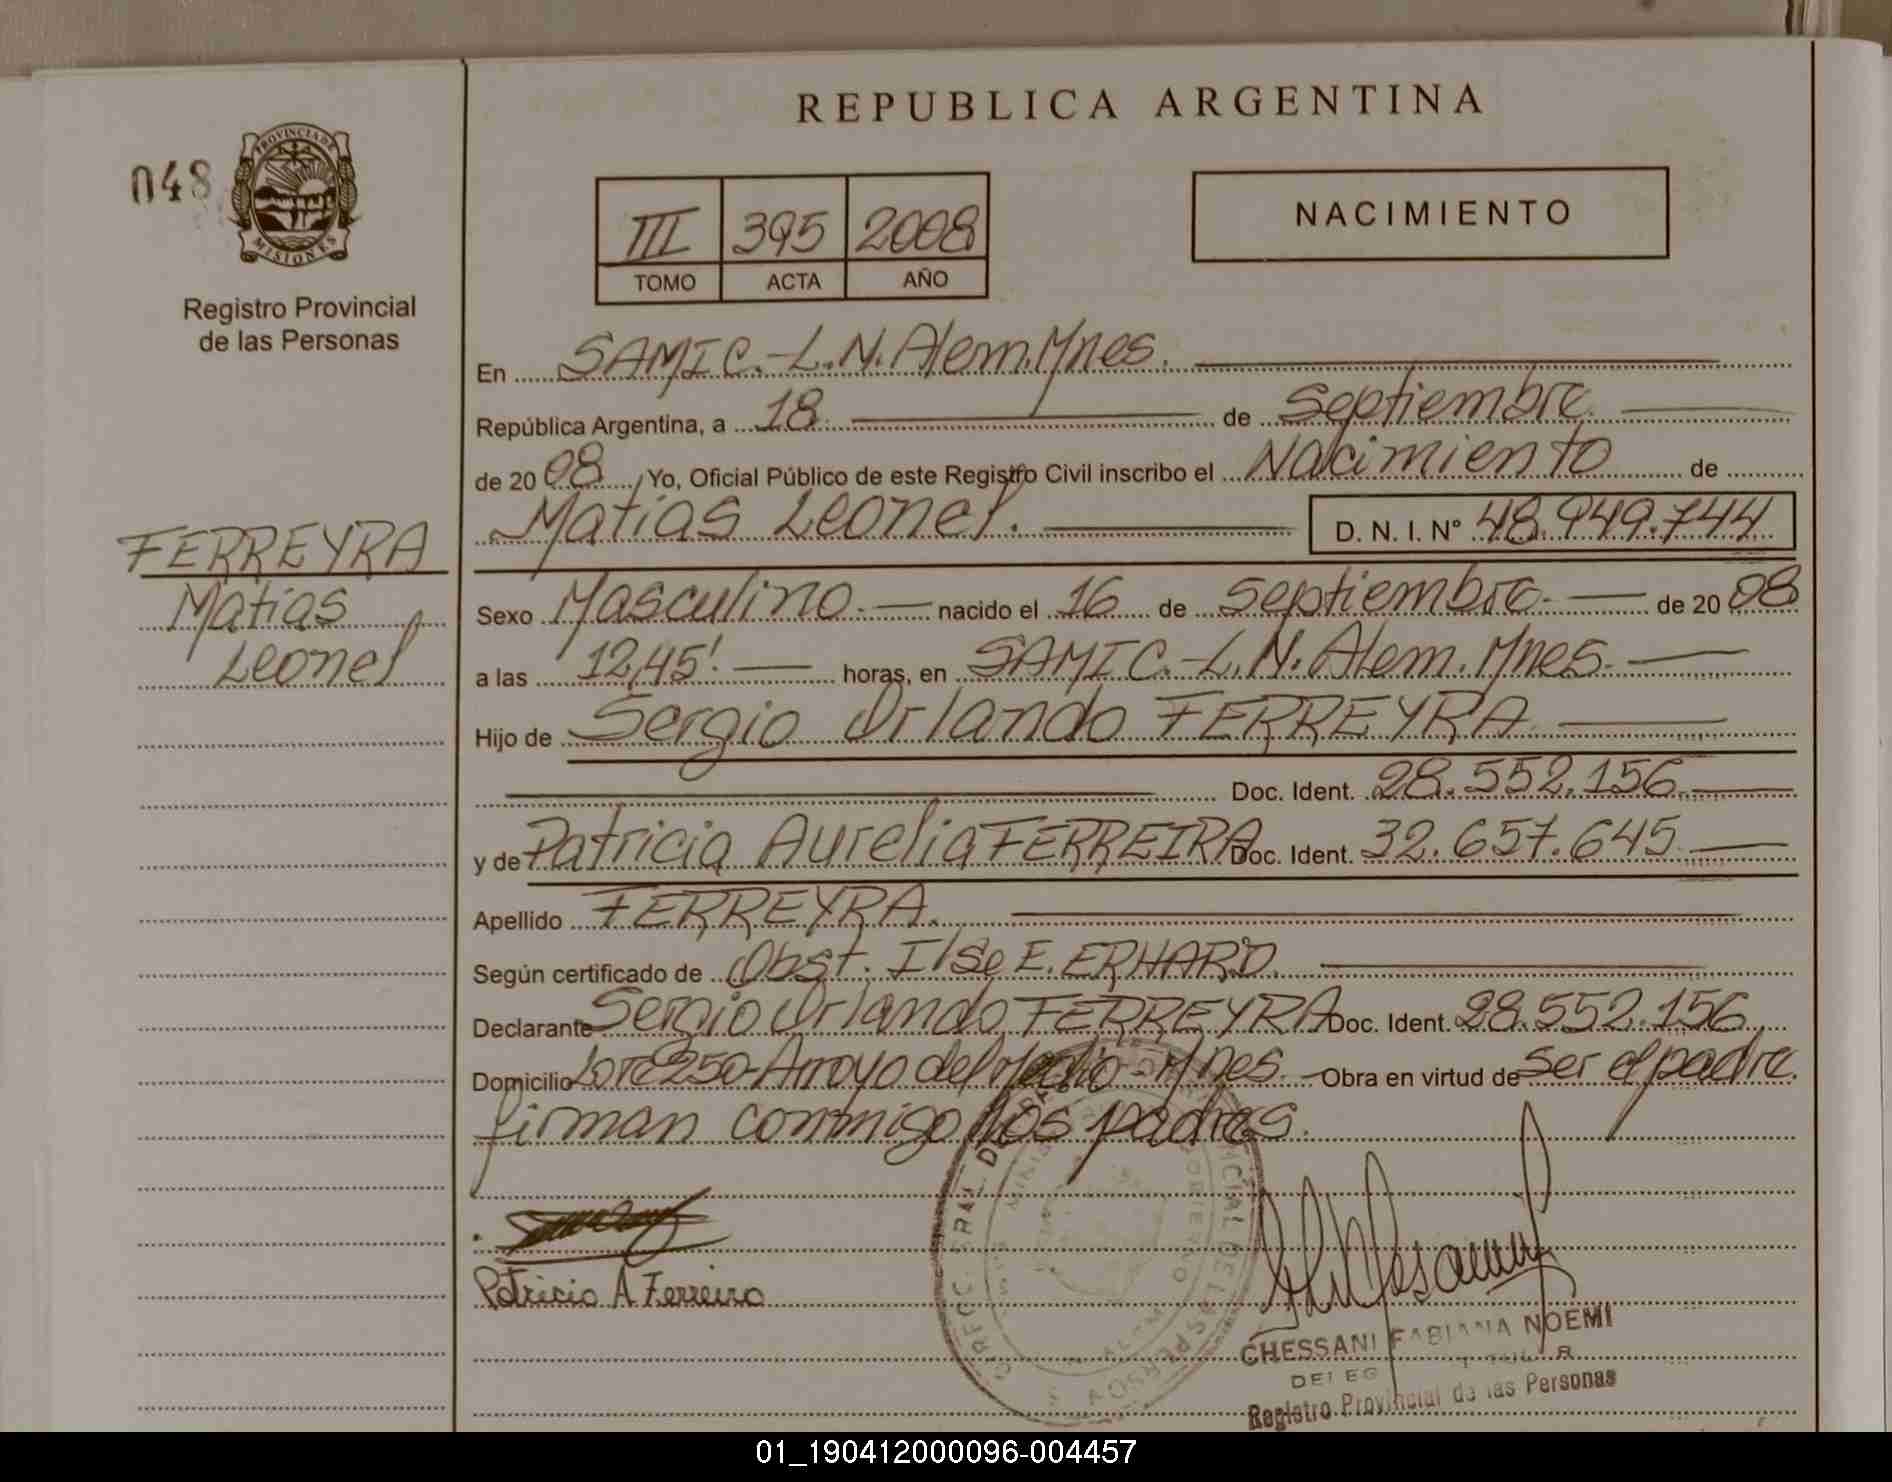 REPUBLICA ARGENTINA
048
PROVINCIA DE
MISIONES
Registro Provincial
de las Personas
III 395 2008
TOMO ACTA AÑO
NACIMIENTO
En SAMIC.-L.N.Alem.Mnes.
República Argentina, a 18. de Septiembre.
de 20 08, Yo, Oficial Público de este Registro Civil inscribo el Nacimiento de
Matias Leonel. D. N. I. N° 48.949.744
FERREYRA
Matias
Leonel
Sexo Masculino. nacido el 16 de Septiembre. de 20 08
a las 12,45'. horas, en SAMIC.-L.N.Alem.Mnes.
Hijo de Sergio Orlando FERREYRA
Doc. Ident. 28.552.156
y de Patricia Aurelia FERREIRA Doc. Ident. 32.657.645
Apellido FERREYRA.
Según certificado de Obst. Ilse E. ERHARD.
Declarante Sergio Orlando FERREYRA Doc. Ident. 28.552.156
Domicilio Lote 250-Arroyo del Medio-Mnes. Obra en virtud de ser el padre.
firman conmigo los padres.
Patricia A Ferreira
CHESSANI FABIANA NOEMI
Registro Provincial de las Personas
01_190412000096-004457